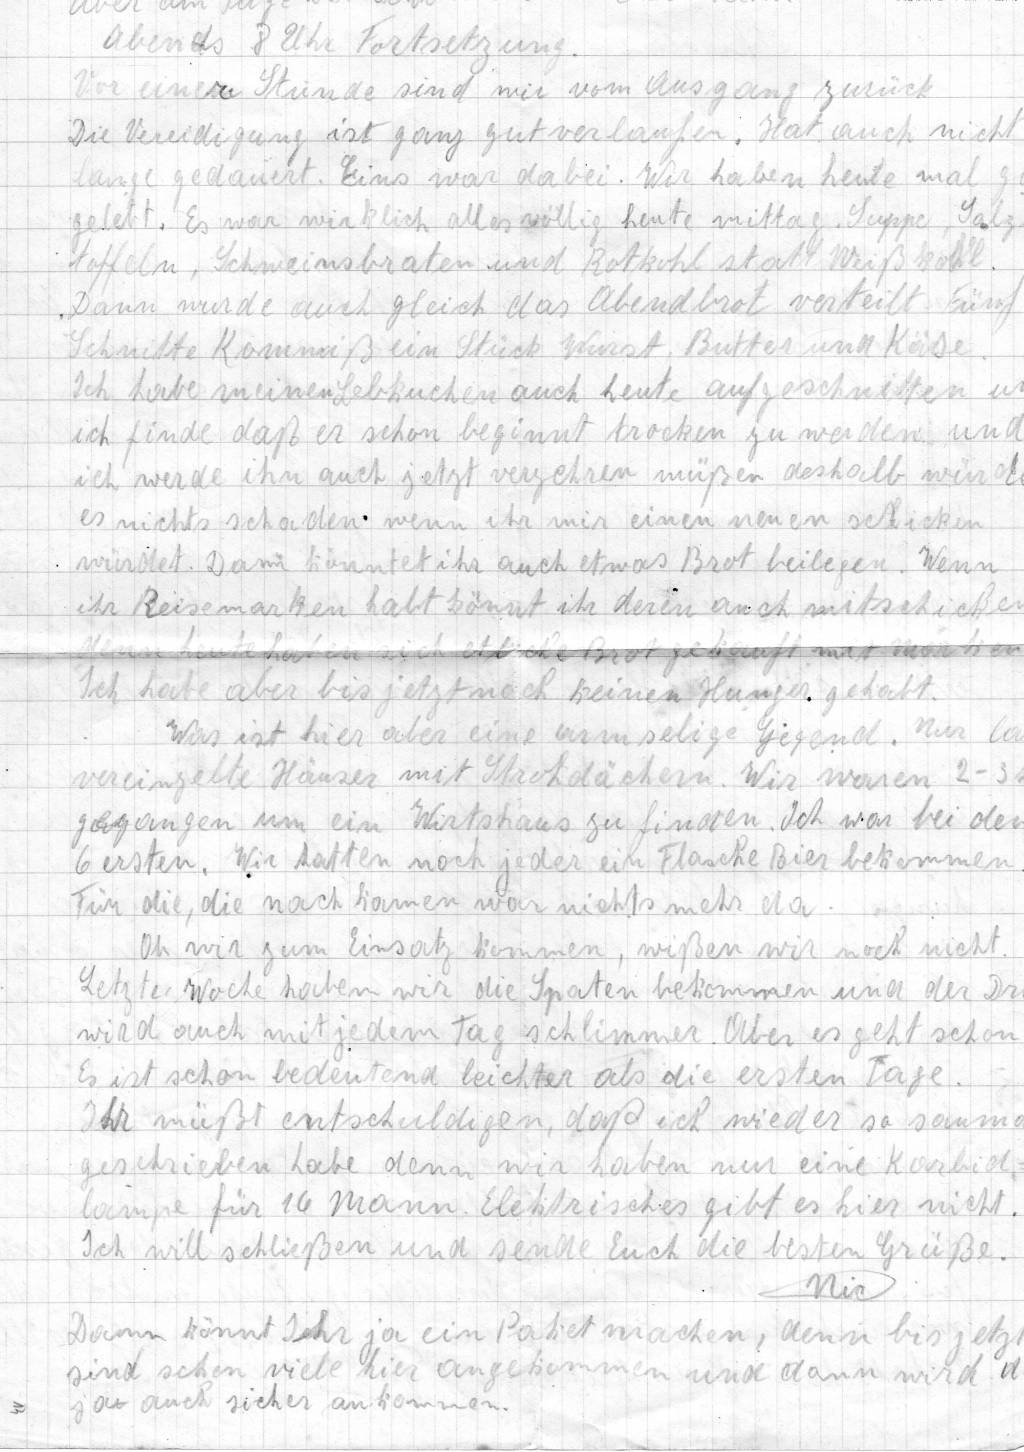 Aber am Tage
Abends 8 Uhr Fortsetzung.
Vor einer Stunde sind wir vom Ausgang zurück
Die Vereidigung ist ganz gut verlaufen. Hat auch nicht
lange gedauert. Eins war dabei. Wir haben heute mal
gelebt. Es war wirklich alles völlig heute mittag. Suppe, Salz
toffeln, Schweinsbraten und Rotkohl statt Weißkohl.
Dann wurde auch gleich das Abendbrot verteilt Fünf
Schnitte Kommiß ein Stück Wurst, Butter und Käse.
Ich habe meinen Lebkuchen auch heute aufgeschnitten
ich finde daß er schon beginnt trocken zu werden und
ich werde ihn auch jetzt verzehren müßen deshalb würde
es nichts schaden wenn ihr mir einen neuen schicken
würdet. Dann könntet ihr auch etwas Brot beilegen. Wenn
ihr Reisemarken habt könnt ihr deren auch mitschicken
denn heute haben sich etliche Brot gekauft mit Marken
Ich habe aber bis jetzt noch keinen Hunger gehabt.
Was ist hier aber eine armselige Gegend. Nur
vereinzelte Häuser mit Strohdächern. Wir waren 2-3
gegangen um ein Wirtshaus zu finden. Ich war bei den
6 ersten. Wir hatten noch jeder ein Flasche Bier bekommen.
Für die, die nach kamen war nichts mehr da.
Ob wir zum Einsatz kommen, wißen wir noch nicht.
Letzte Woche haben wir die Spaten bekommen und der
wird auch mit jedem Tag schlimmer. Aber es geht schon
Es ist schon bedeutend leichter als die ersten Tage.
Ihr müßt entschuldigen, daß ich wieder so
geschrieben habe denn wir haben nur eine Karbid=
lampe für 16 Mann. Elektrisches gibt es hier nicht.
Ich will schließen und sende Euch die besten Grüße.
Dann könnt Ihr ja ein Paket machen, denn bis jetzt
sind schon viele hier angekommen und dann wird
ja auch sicher ankommen.